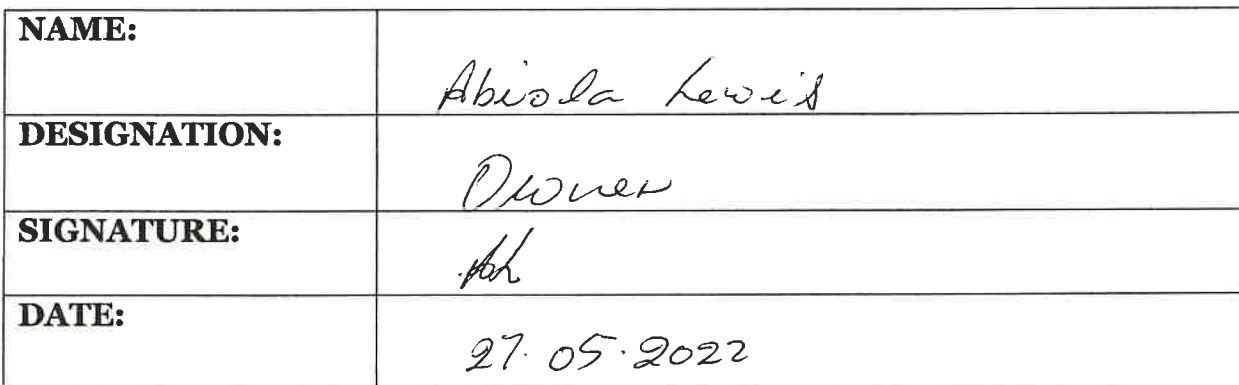 NAME:
Abiola Lewis
DESIGNATION:
Owner
SIGNATURE:
DATE:
27.05.2022